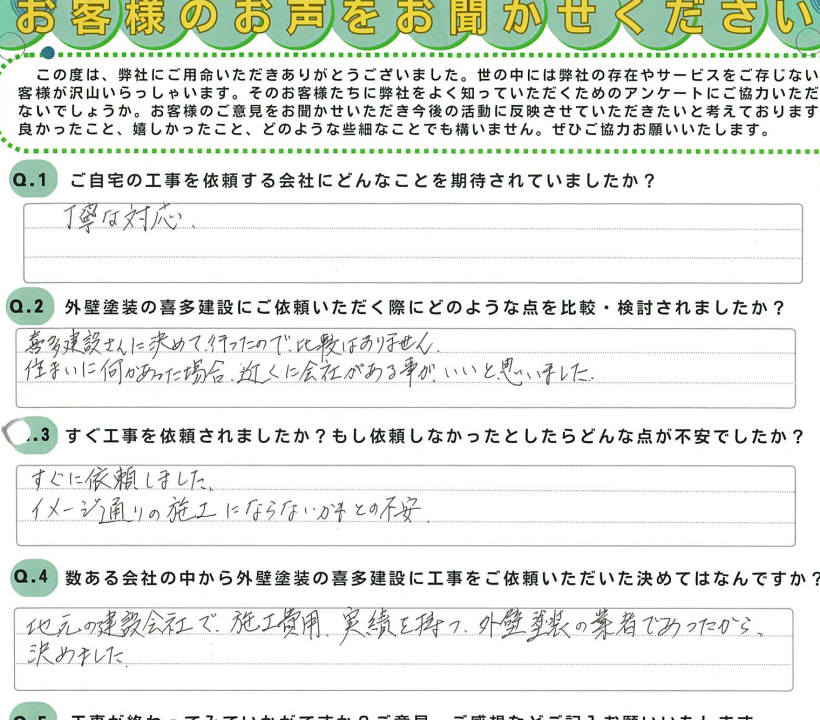 お客様のお声をお聞かせください
この度は、弊社にご用命いただきありがとうございました。世の中には弊社の存在やサービスをご存じない
客様が沢山いらっしゃいます。そのお客様たちに弊社をよく知っていただくためのアンケートにご協力いただ
ないでしょうか。お客様のご意見をお聞かせいただき今後の活動に反映させていただきたいと考えております
良かったこと、嬉しかったこと、どのような些細なことでも構いません。ぜひご協力お願いいたします。
Q.1 ご自宅の工事を依頼する会社にどんなことを期待されていましたか?
丁寧な対応、
Q.2 外壁塗装の喜多建設にご依頼いただく際にどのような点を比較・検討されましたか?
喜多建設さんに決めて、行ったので、比較はありません。
住まいに何かあった場合、近くに会社がある事が、いいと思いました。
.3 すぐ工事を依頼されましたか?もし依頼しなかったとしたらどんな点が不安でしたか?
すぐに依頼しました。
イメージ通りの施工にならないかもとの不安。
Q.4 数ある会社の中から外壁塗装の喜多建設に工事をご依頼いただいた決めてはなんですか?
地元の建設会社で、施工費用、実績を持つ、外壁塗装の業者であったから、
決めました。
Q.5 工事が終わってみていかがですか?ご意見、ご感想などご記入お願いいたします